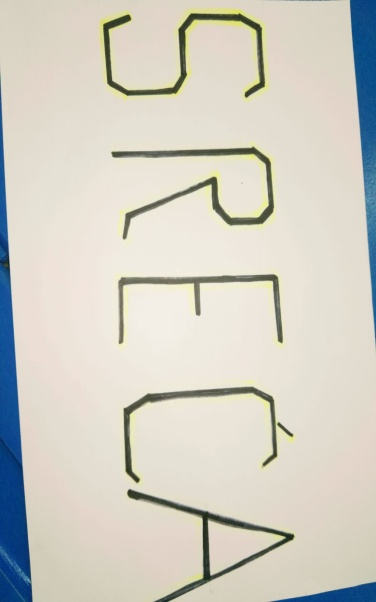 SREĆA